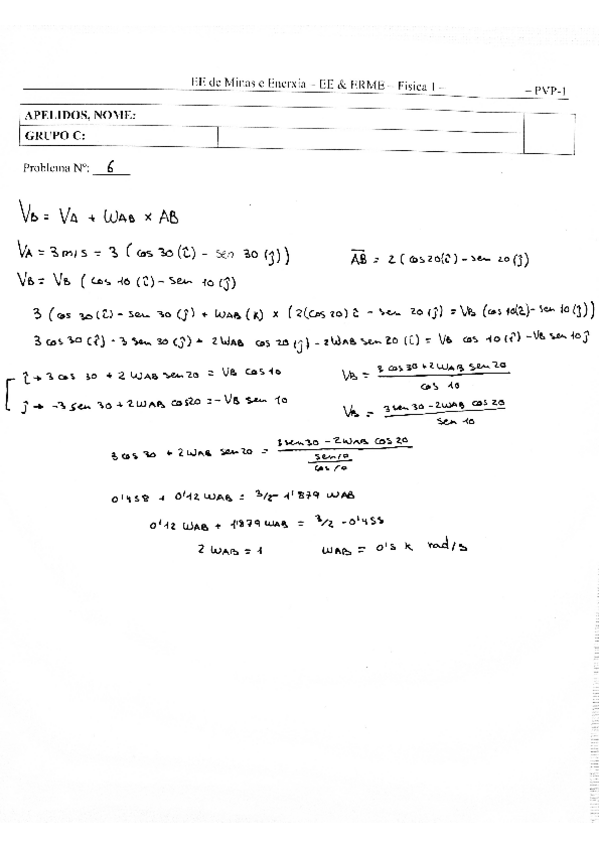 EE de Minas e Enerxía - EE & ERME - Física I - - PVP-1
APELIDOS, NOME:
GRUPO C:
Problema Nº: 6
VB = VA + WAB × AB
VA = 3 m/s = 3 (cos 30 (î) - sen 30 (ĵ)) AB = 2 (cos 20 (î) - sen 20 (ĵ)
VB = VB (cos 10 (î) - sen 10 (ĵ)
3 (cos 30 (î) - sen 30 (ĵ) + WAB (k) × (2(cos 20) î - sen 20 (ĵ) = VB (cos 10(î) - sen 10 (ĵ))
3 cos 30 (î) - 3 sen 30 (ĵ) + 2 WAB cos 20 (ĵ) - 2 WAB sen 20 (î) = VB cos 10 (î) - VB sen 10 ĵ
î → 3 cos 30 + 2 WAB sen 20 = VB cos 10 VB = 3 cos 30 + 2 WAB sen 20 / cos 10
ĵ → -3 sen 30 + 2 WAB cos 20 = - VB sen 10 VB = 3 sen 30 - 2 WAB cos 20 / sen 10
3 cos 30 + 2 WAB sen 20 = 3 sen 30 - 2 WAB cos 20 / sen 10 / cos 10
0'458 + 0'12 WAB = 3/2 - 1'879 WAB
0'12 WAB + 1'879 WAB = 3/2 - 0'458
2 WAB = 1 WAB = 0'5 k rad/s